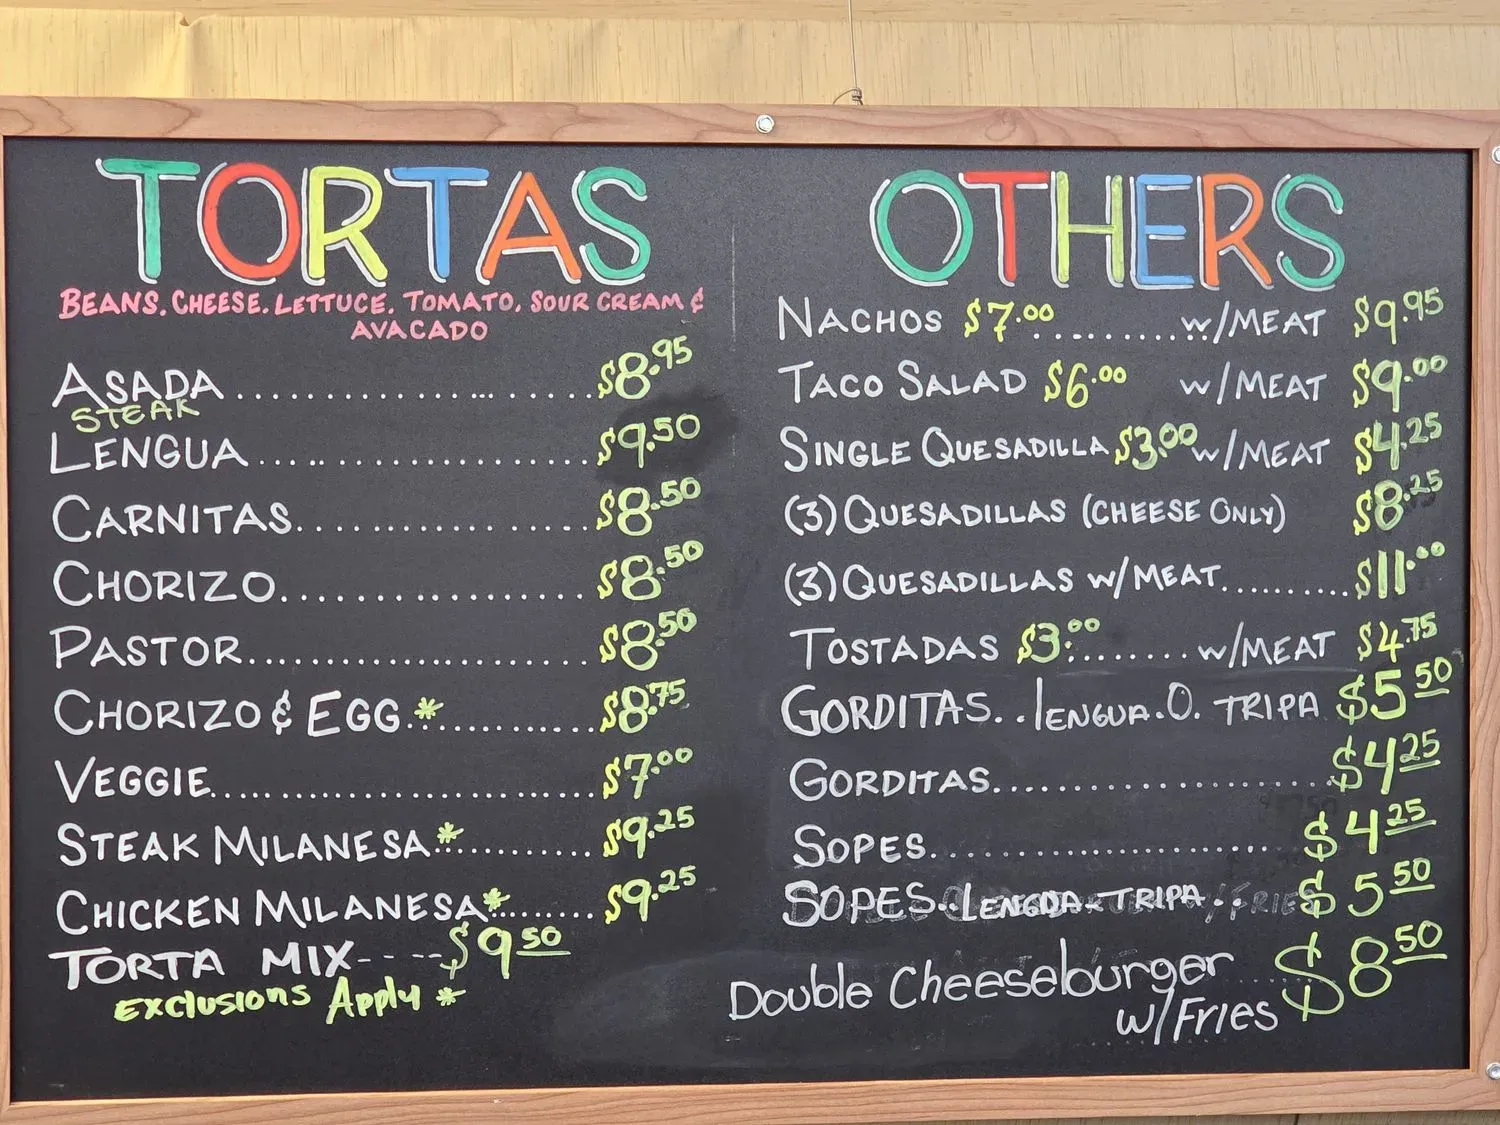 TORTAS
BEANS. CHEESE. LETTUCE. TOMATO. SOUR CREAM &
AVACADO
ASADA ........................ $8.95
STEAK
LENGUA ........................ $9.50
CARNITAS ........................ $8.50
CHORIZO ........................ $8.50
PASTOR ........................ $8.50
CHORIZO & EGG * ............ $8.75
VEGGIE ........................ $7.00
STEAK MILANESA * ............ $9.25
CHICKEN MILANESA * ......... $9.25
TORTA MIX ---- $9.50
EXCLUSIONS Apply *
OTHERS
NACHOS $7.00 ............ W/MEAT $9.95
TACO SALAD $6.00 W/MEAT $9.00
SINGLE QUESADILLA $3.00 W/MEAT $4.25
(3) QUESADILLAS (CHEESE ONLY) $8.25
(3) QUESADILLAS W/MEAT .......... $11.00
TOSTADAS $3.00 ........ W/MEAT $4.75
GORDITAS.. lENGUA. O. TRIPA $5.50
GORDITAS ........................ $4.25
SOPES ........................ $4.25
SOPES.. LENGUA TRIPA .. $5.50
Double Cheeseburger ...... $8.50
w/Fries